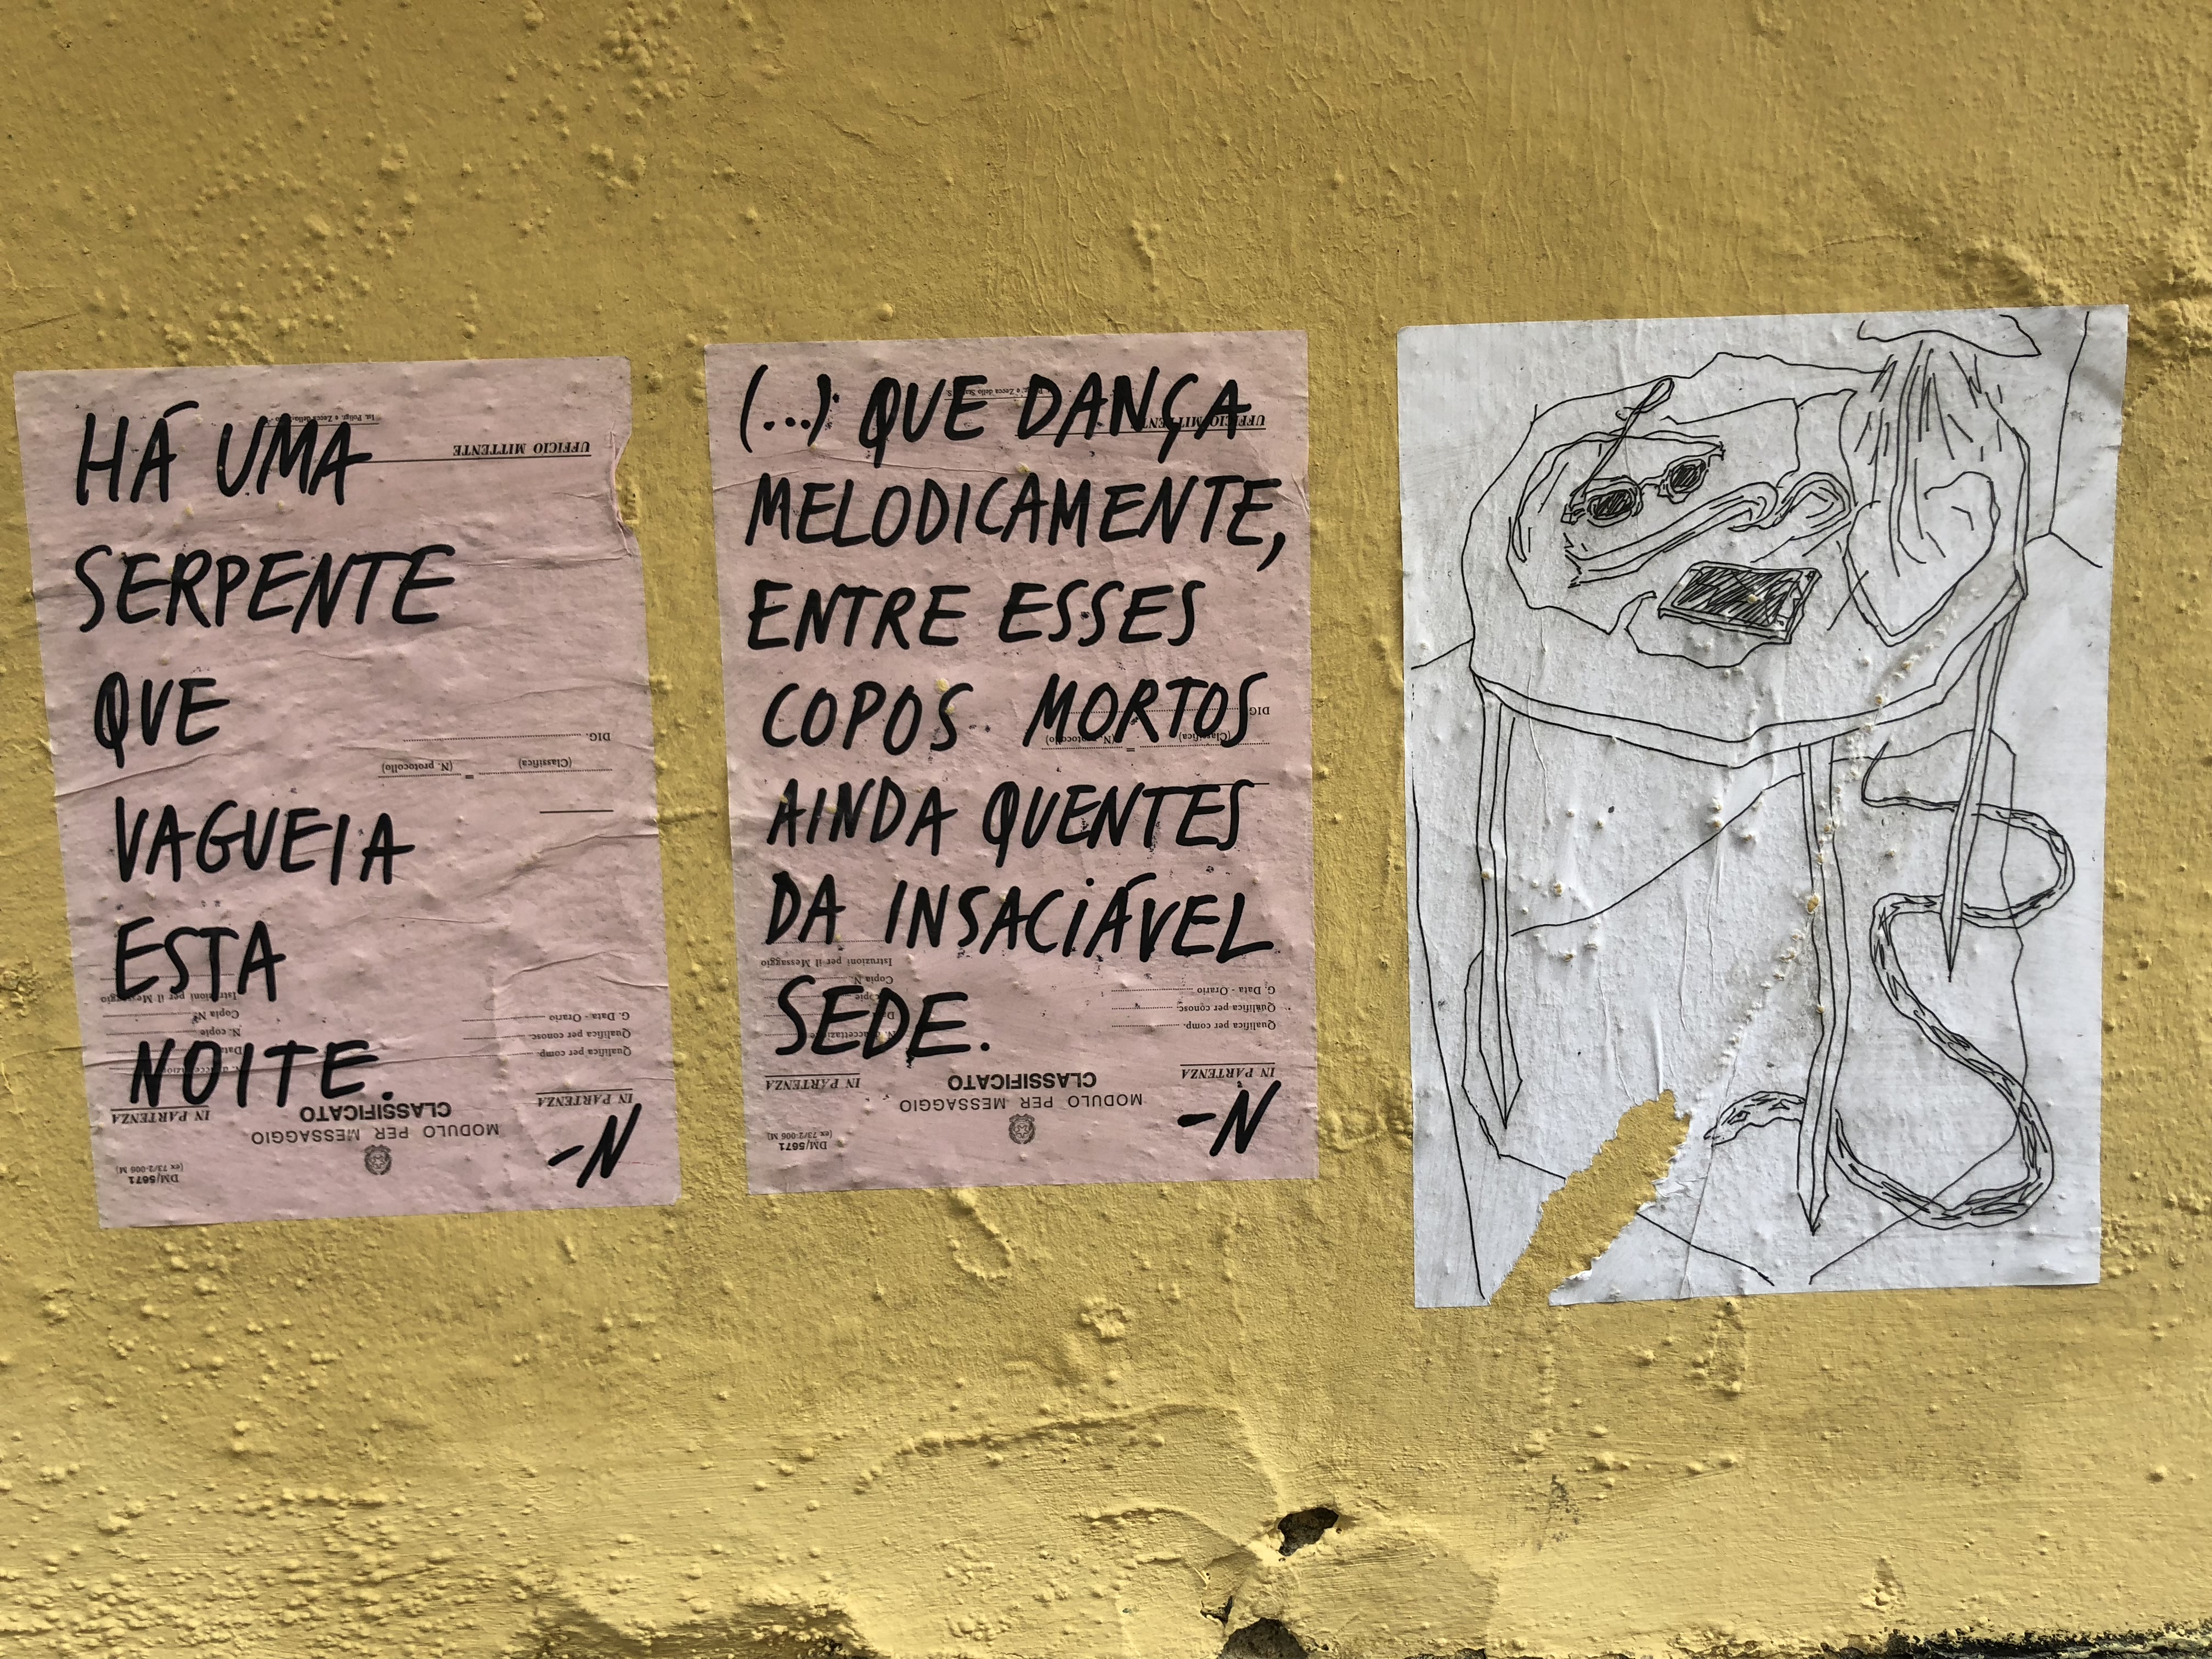 HÁ UMA
SERPENTE
QUE
VAGUEIA
ESTA
NOITE.
-N
UFFICIO MITTENTE
DIG.
(Classifica) = (N. protocollo)
Istruzioni per il Messaggio
Copia N.
N. copie
G. Data - Orario
Qualifica per conosc.
Qualifica per comp.
IN PARTENZA
IN PARTENZA
CLASSIFICATO
MODULO PER MESSAGGIO
DM/5671
(ex 73/2-006 M)
(...) QUE DANÇA
MELODICAMENTE,
ENTRE ESSES
COPOS MORTOS
AINDA QUENTES
DA INSACIÁVEL
SEDE.
-N
UFFICIO MITTENTE
DIG.
(Classifica) = (N. protocollo)
Istruzioni per il Messaggio
Copia N.
G. Data - Orario
Qualifica per conosc.
Qualifica per comp.
IN PARTENZA
IN PARTENZA
CLASSIFICATO
MODULO PER MESSAGGIO
DM/5671
(ex 73/2-006 M)